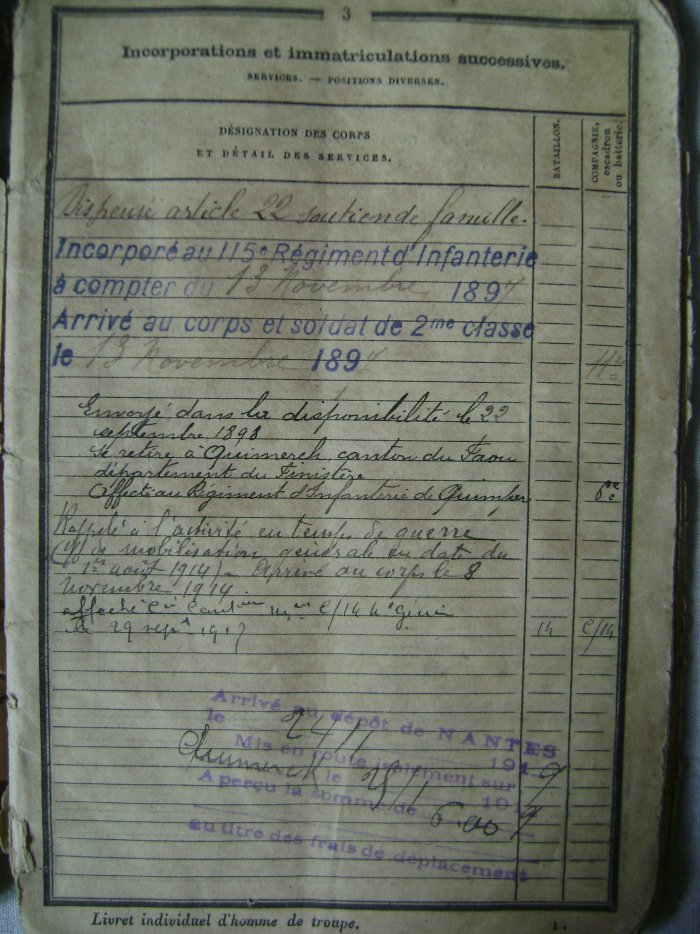 3
Incorporations et immatriculations successives.
SERVICES. — POSITIONS DIVERSES.
DÉSIGNATION DES CORPS
ET DÉTAIL DES SERVICES.
BATAILLON.
COMPAGNIE,
escadron
ou batterie.
Dispensé article 22 soutien de famille.
Incorporé au 115e Régiment d'Infanterie
à compter du 13 Novembre 1897
Arrivé au corps et soldat de 2me classe
le 13 Novembre 1897
Envoyé dans la disponibilité le 22
septembre 1898
Se retire à Quimerch, canton du Faou
département du Finistère
Affecté au Régiment d'Infanterie de Quimper.
Rappelé à l'activité en temps de guerre
de mobilisation générale en date du
1er août 1914) - Arrivé au corps le 8
novembre 1914.
C/14
le 29 sept 1917
14 C/14
Arrivé au dépôt de NANTES
le 24/1 1919
Mis en route isolément sur
Quimerch le 1919
A perçu la somme de 6.00
au titre des frais de déplacement
Livret individuel d'homme de troupe.
1.